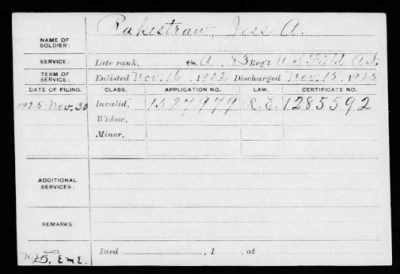 NAME OF SOLDIER: Rakestraw, Jess A.
SERVICE: Late rank, A, 83 Regt U.S. Field Art.
TERM OF SERVICE: Enlisted Nov. 16, 1922 Discharged Nov. 15, 1925
DATE OF FILING. CLASS. APPLICATION NO. LAW. CERTIFICATE NO.
1925-Nov. 30 Invalid, 1527979 1285592
Widow,
Minor,
ADDITIONAL SERVICES:
REMARKS:
Died , 1 , at